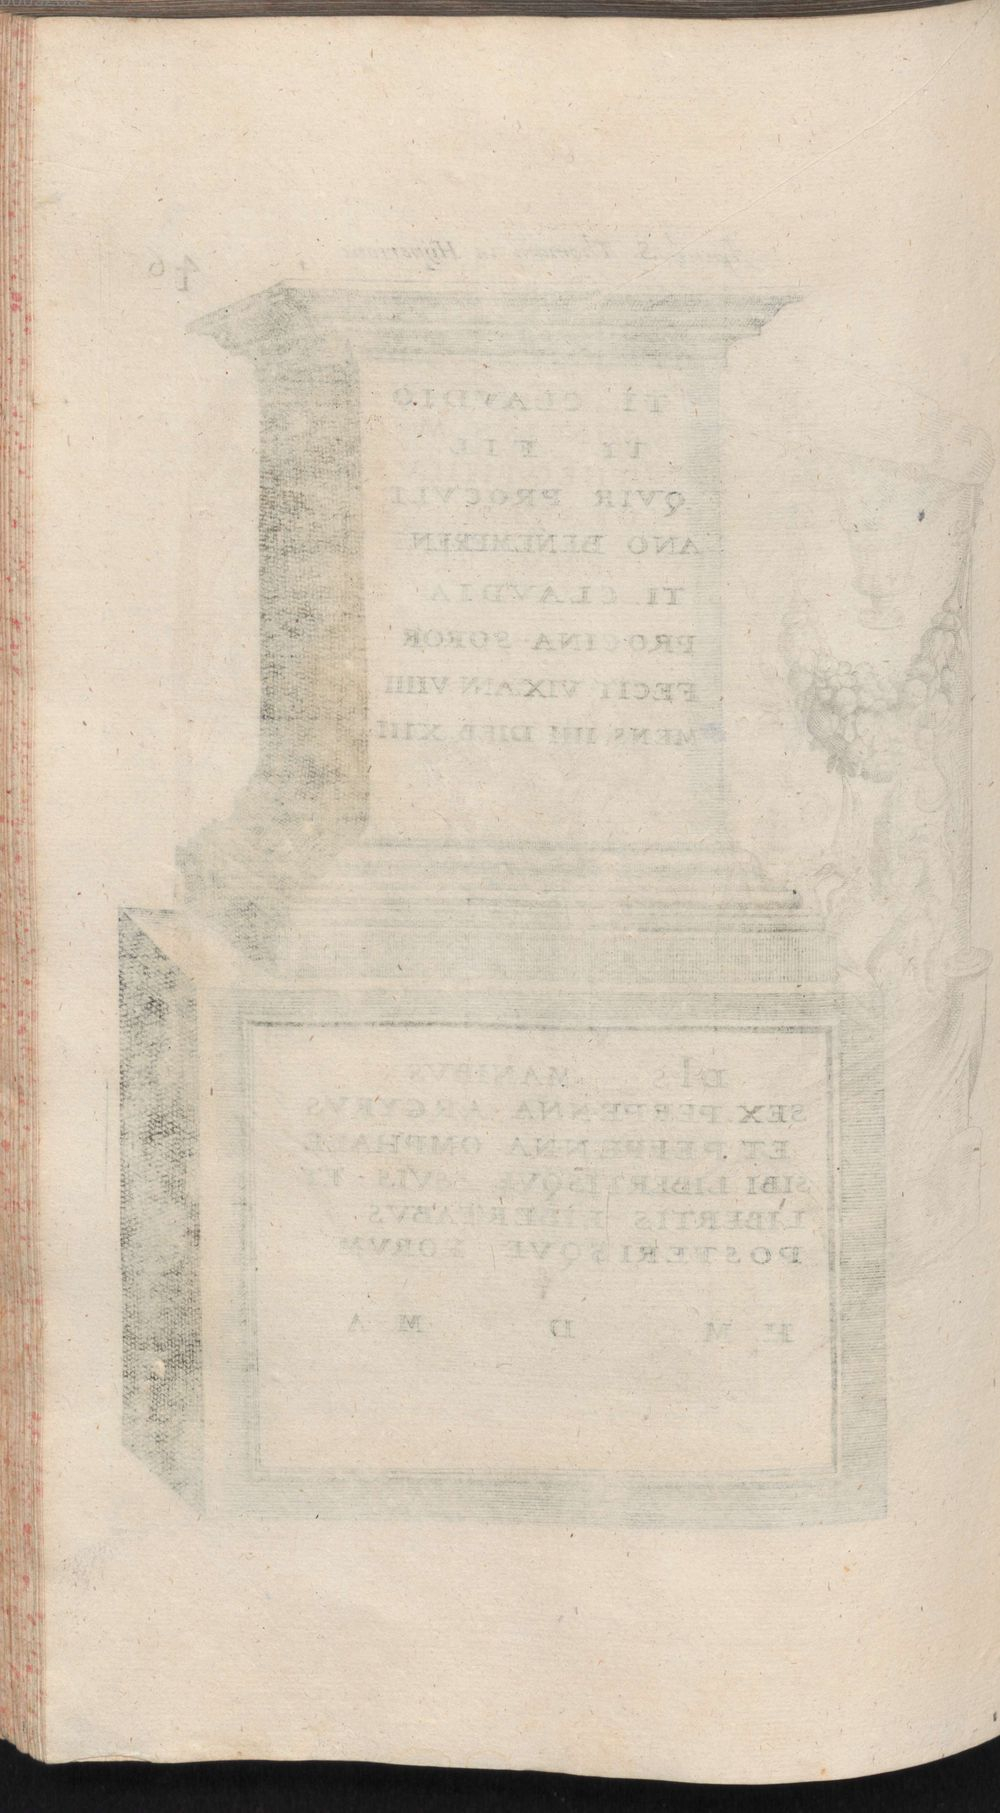 46
S. Thomam in
TI CLAVDIO
TI FIL
QVIR PROCVLI
ANO BENEMEREN
TI CLAVDIA
PROCINA SOROR
FECIT VIX ANN VIIII
MENS IIII DIEB XIII
DIS MANIBVS
SEX PERPENNA ARGYRVS
ET PERPENNA OMPHALE
SIBI LIBERTISQVE SVIS ET
LIBERTIS LIBERTABVS
POSTERISQVE EORVM
H M D M A